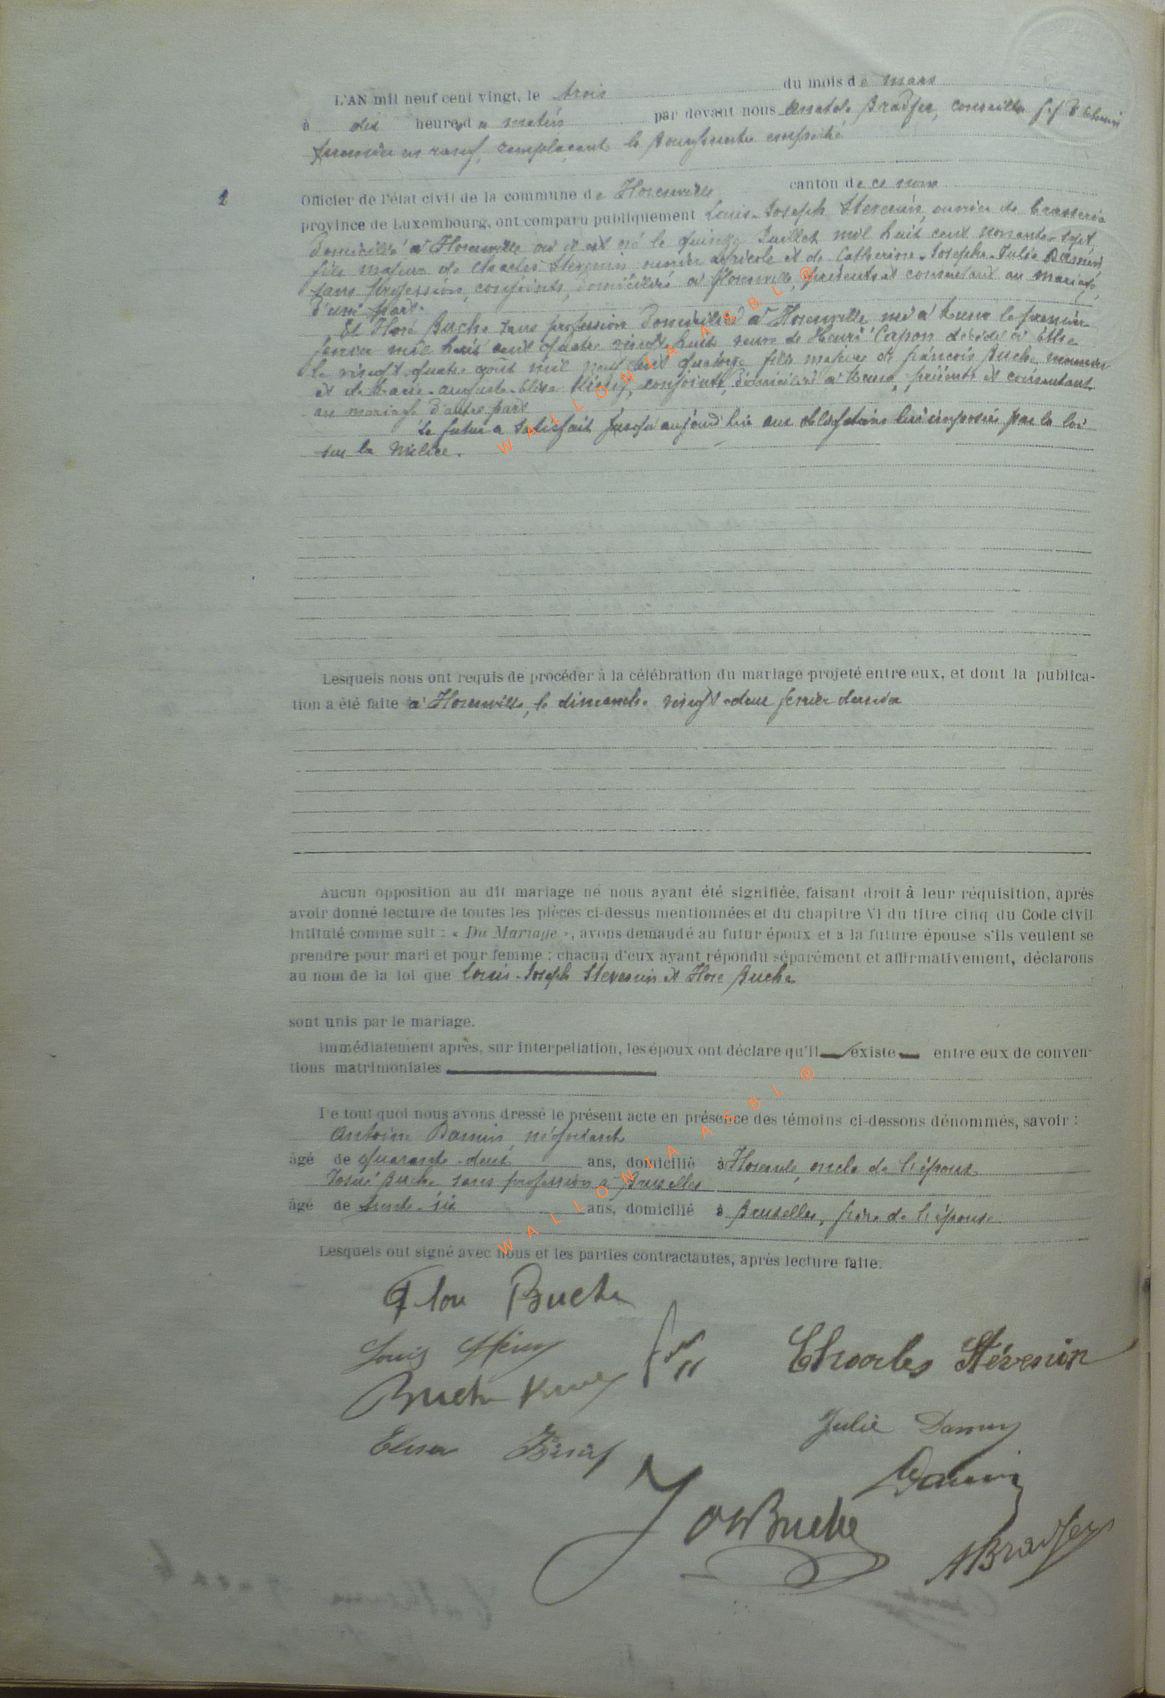 L'AN mil neuf cent vingt, le trois du mois de mars
à dix heures du matin par devant nous Anatole Bradfer, conseiller
premier en rang, remplaçant le Bourgmestre empêché
1
Officier de l'état civil de la commune de Florenville canton de ce nom
province de Luxembourg, ont comparu publiquement Louis-Joseph Stevenin, ouvrier de brasserie
domicilié à Florenville où il est né le quinze Juillet mil huit cent nonante-sept,
fils majeur de Charles Stevenin ouvrier agricole et de Catherine-Josephe-Julie Damin
sans profession, conjoints, domiciliés à Florenville, présents et consentant au mariage,
d'une part.
Et Flore Buche sans profession domiciliée à Florenville née à le premier
janvier mil huit cent quatre vingt huit veuve de Henri Capon décédé à
le vingt quatre août mil neuf cent quatorze fille majeure de François Buche,
et de Marie-Auguste-Elisa conjoints, domiciliés à présents et consentant
au mariage d'autre part
Le futur a satisfait jusqu'aujourd'hui aux obligations lui imposées par la loi
sur la milice.
Lesquels nous ont requis de procéder à la célébration du mariage projeté entre eux, et dont la publica-
tion a été faite à Florenville, le dimanche vingt-deux février dernier
Aucun opposition au dit mariage ne nous ayant été signifiée, faisant droit à leur réquisition, après
avoir donné lecture de toutes les pièces ci-dessus mentionnées et du chapitre VI du titre cinq du Code civil
intitulé comme suit : « Du Mariage », avons demandé au futur époux et à la future épouse s'ils veulent se
prendre pour mari et pour femme ; chacun d'eux ayant répondu séparément et affirmativement, déclarons
au nom de la loi que Louis-Joseph Stevenin et Flore Buche
sont unis par le mariage.
Immédiatement après, sur interpellation, les époux ont déclaré qu'il existe entre eux de conven-
tions matrimoniales
De tout quoi nous avons dressé le présent acte en présence des témoins ci-dessons dénommés, savoir :
Antoine Damin, négociant
âgé de quarante-deux ans, domicilié à Florenville, oncle de l'époux
Buche sans profession à Bruxelles
âgé de trente-six ans, domicilié à Bruxelles, frère de l'épouse
Lesquels ont signé avec nous et les parties contractantes, après lecture faite.
Flore Buche
Louis
Charles Stévenin
Buche
Julie Damin
Elisa
Damin
Buche
ABradfer
WALLONIA ASBL ®
WALLONIA ASBL ®